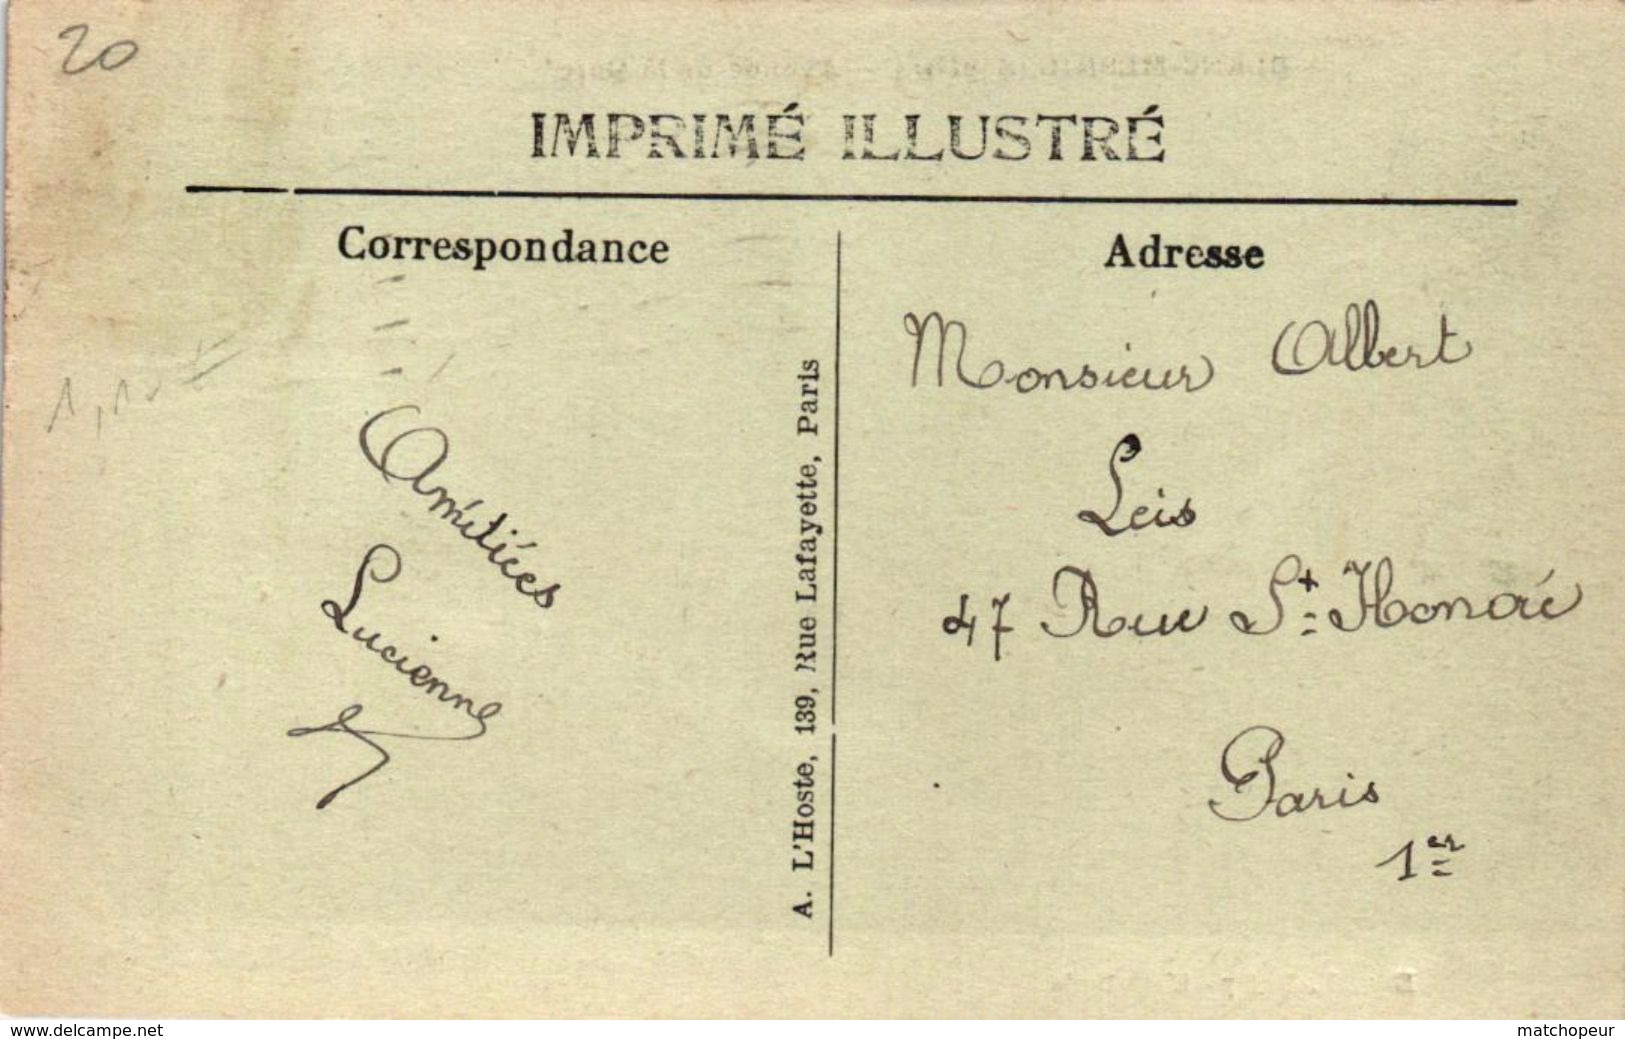 20
IMPRIMÉ ILLUSTRÉ
Correspondance
Adresse
Amitiées
Lucienne
A. L'Hoste, 139, Rue Lafayette, Paris
Monsieur Albert
Leis
47 Rue St Honoré
Paris
1er
www.delcampe.net
matchopeur